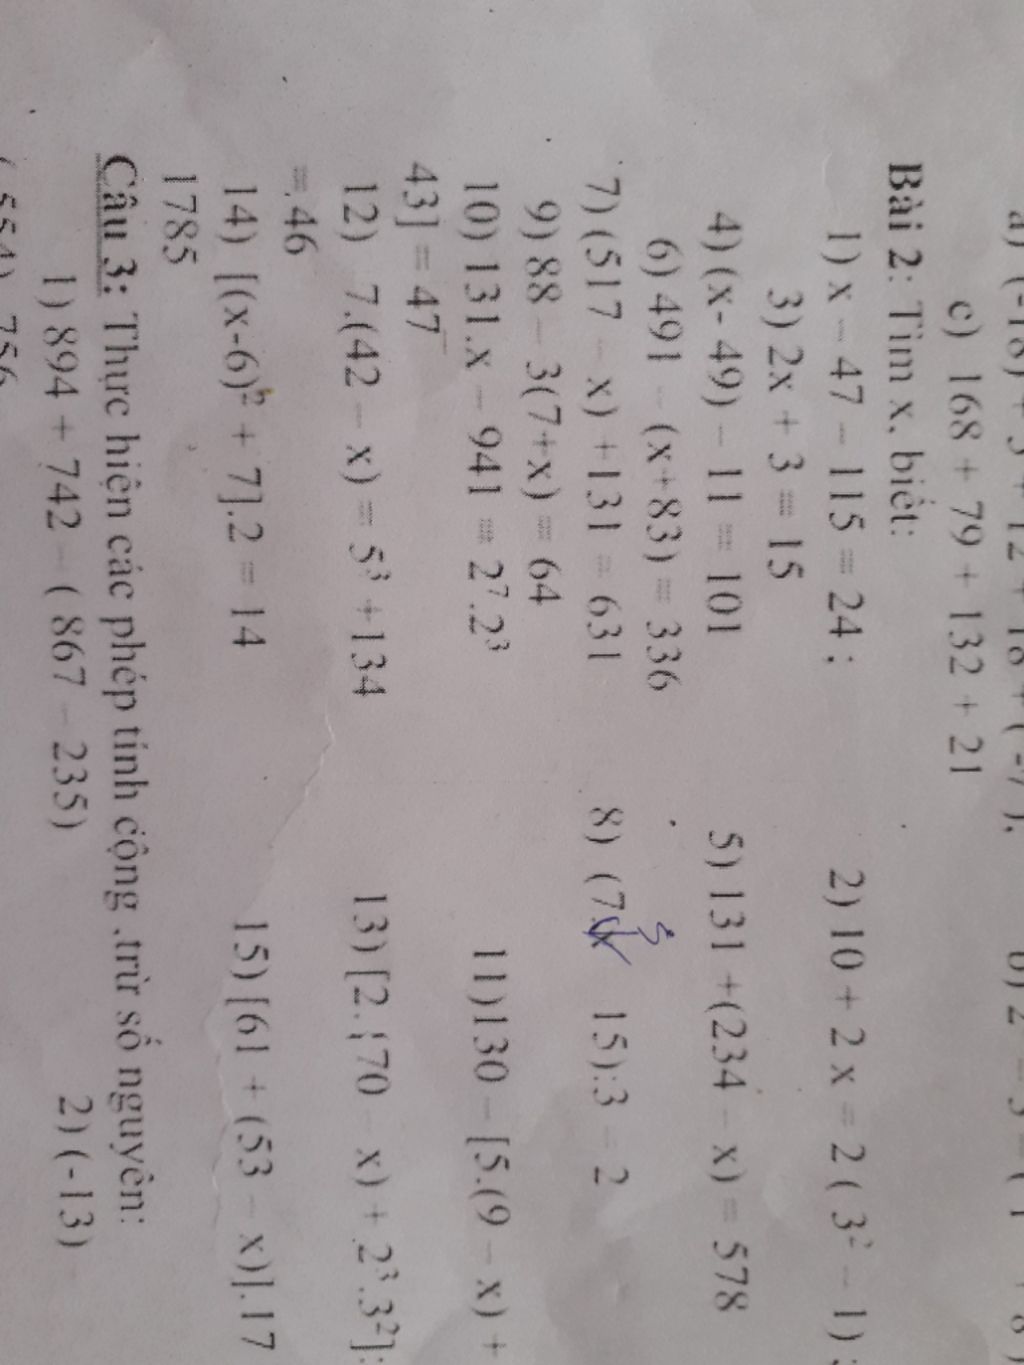 a) (-18) + 5 + 12 + 18 + ( -7 ).
c) 168 + 79 + 132 + 21
Bài 2: Tìm x, biết:
1) x – 47 – 115 = 24 ; 2) 10 + 2 x = 2 ( 3² – 1)
3) 2x + 3 = 15
4) (x- 49) – 11 = 101 5) 131 +(234 – x) = 578
6) 491 – (x+83) = 336
7) (517 – x) +131 = 631 8) (7 15):3 = 2
9) 88 – 3(7+x) = 64
10) 131.x – 941 = 2⁷.2³ 11)130 – [5.(9 – x) +
43] = 47
12) 7.(42 – x) = 5³ +134 13) [2.{70 – x) + 2³.3²]:
= 46
14) [(x-6)² + 7].2 = 14 15) [61 + (53 – x)].17
1785
Câu 3: Thực hiện các phép tính cộng ,trừ số nguyên:
1) 894 + 742 – ( 867 – 235) 2) (-13)